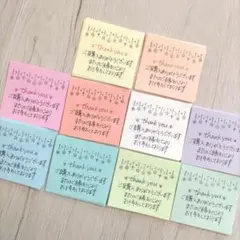 thank you
ご購入ありがとうございます
またのご縁を心より
お待ちしております
thank you
ご購入ありがとうございます
またのご縁を心より
お待ちしております
thank you
ご購入ありがとうございます
またのご縁を心より
お待ちしております
thank you
ご購入ありがとうございます
またのご縁を心より
お待ちしております
thank you
ご購入ありがとうございます
またのご縁を心より
お待ちしております
thank you
ご購入ありがとうございます
またのご縁を心より
お待ちしております
thank you
ご購入ありがとうございます
またのご縁を心より
お待ちしております
thank you
ご購入ありがとうございます
またのご縁を心より
お待ちしております
thank you
ご購入ありがとうございます
またのご縁を心より
お待ちしております
thank you
ご購入ありがとうございます
またのご縁を心より
お待ちしております